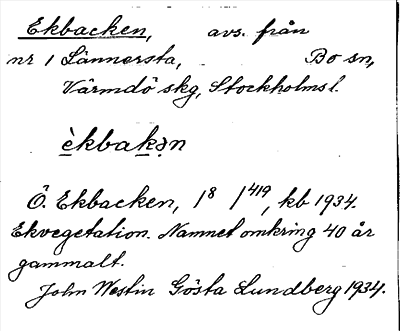 Ekbacken, avs. från
nr 1 Lännersta, Bo sn,
Värmdö skg, Stockholms l.
èkbakən
Ö. Ekbacken, 1⁸ 1⁴¹⁹, kb 1934.
Ekvegetation. Namnet omkring 40 år
gammalt.
John Westin Gösta Lundberg 1934.